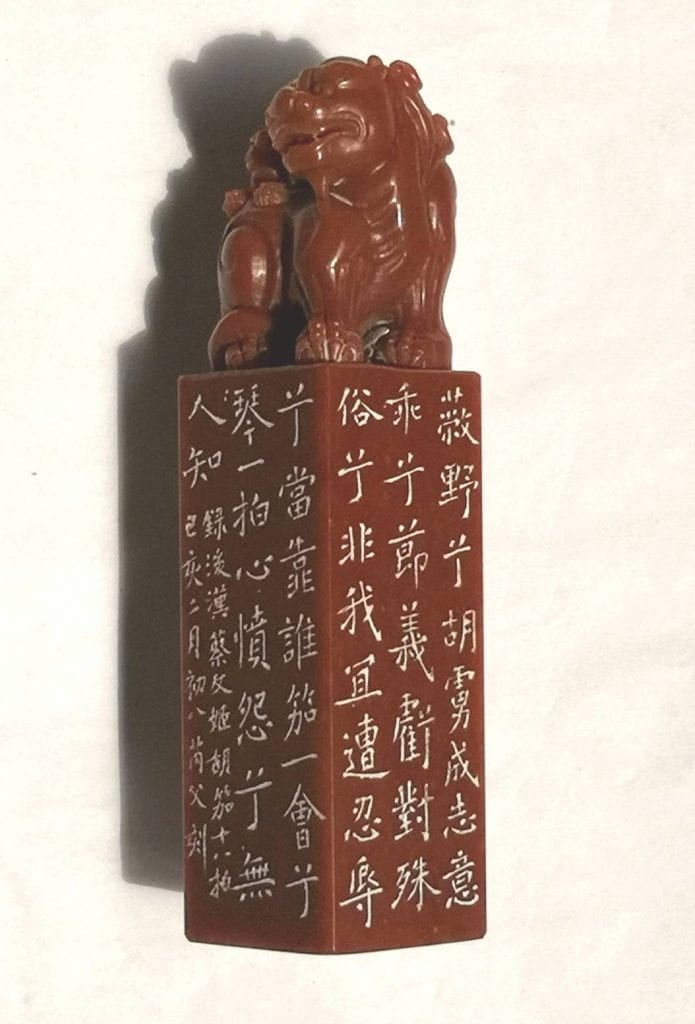 蔽野兮胡虜成志意
乖兮節義虧對殊
俗兮非我宜遭忍辱
兮當靠誰笳一會兮
琴一拍心憤怨兮無
人知
錄後漢蔡文姬胡笳十八拍
己亥二月初八芮父刻